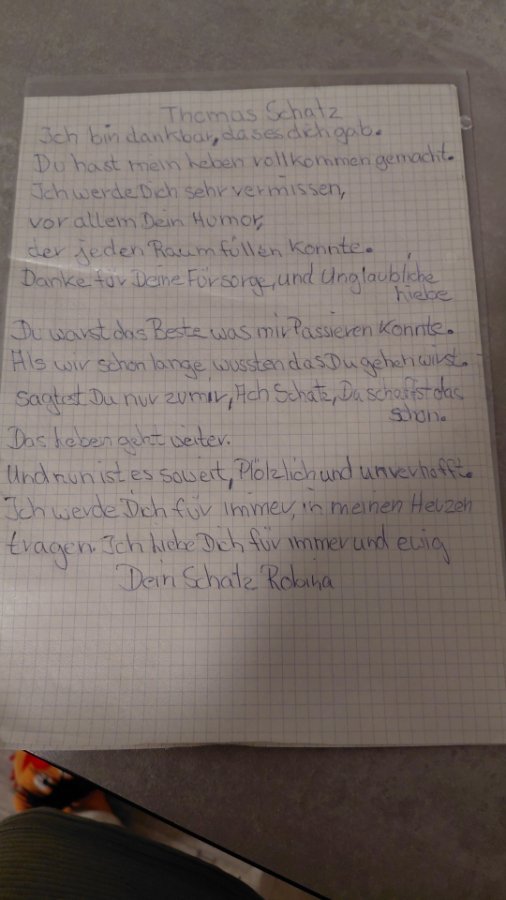 Thomas Schatz
Ich bin dankbar, dases dich gab.
Du hast mein Leben vollkommen gemacht.
Ich werde Dich sehr vermissen,
vor allem Dein Humor,
der jeden Raum füllen konnte.
Danke für Deine Fürsorge, und Unglaubliche
Liebe
Du warst das Beste was mir Passieren konnte.
Als wir schon lange wussten das Du gehen wirst.
Sagtest Du nur zu mir, Ach Schatz, Du schaffst das
schon.
Das Leben geht weiter.
Und nun ist es soweit, Plötzlich und unverhofft.
Ich werde Dich für immer, in meinen Herzen
tragen. Ich Liebe Dich für immer und ewig
Dein Schatz Robina